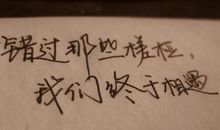 错过那些槎桠,
我们终于相遇